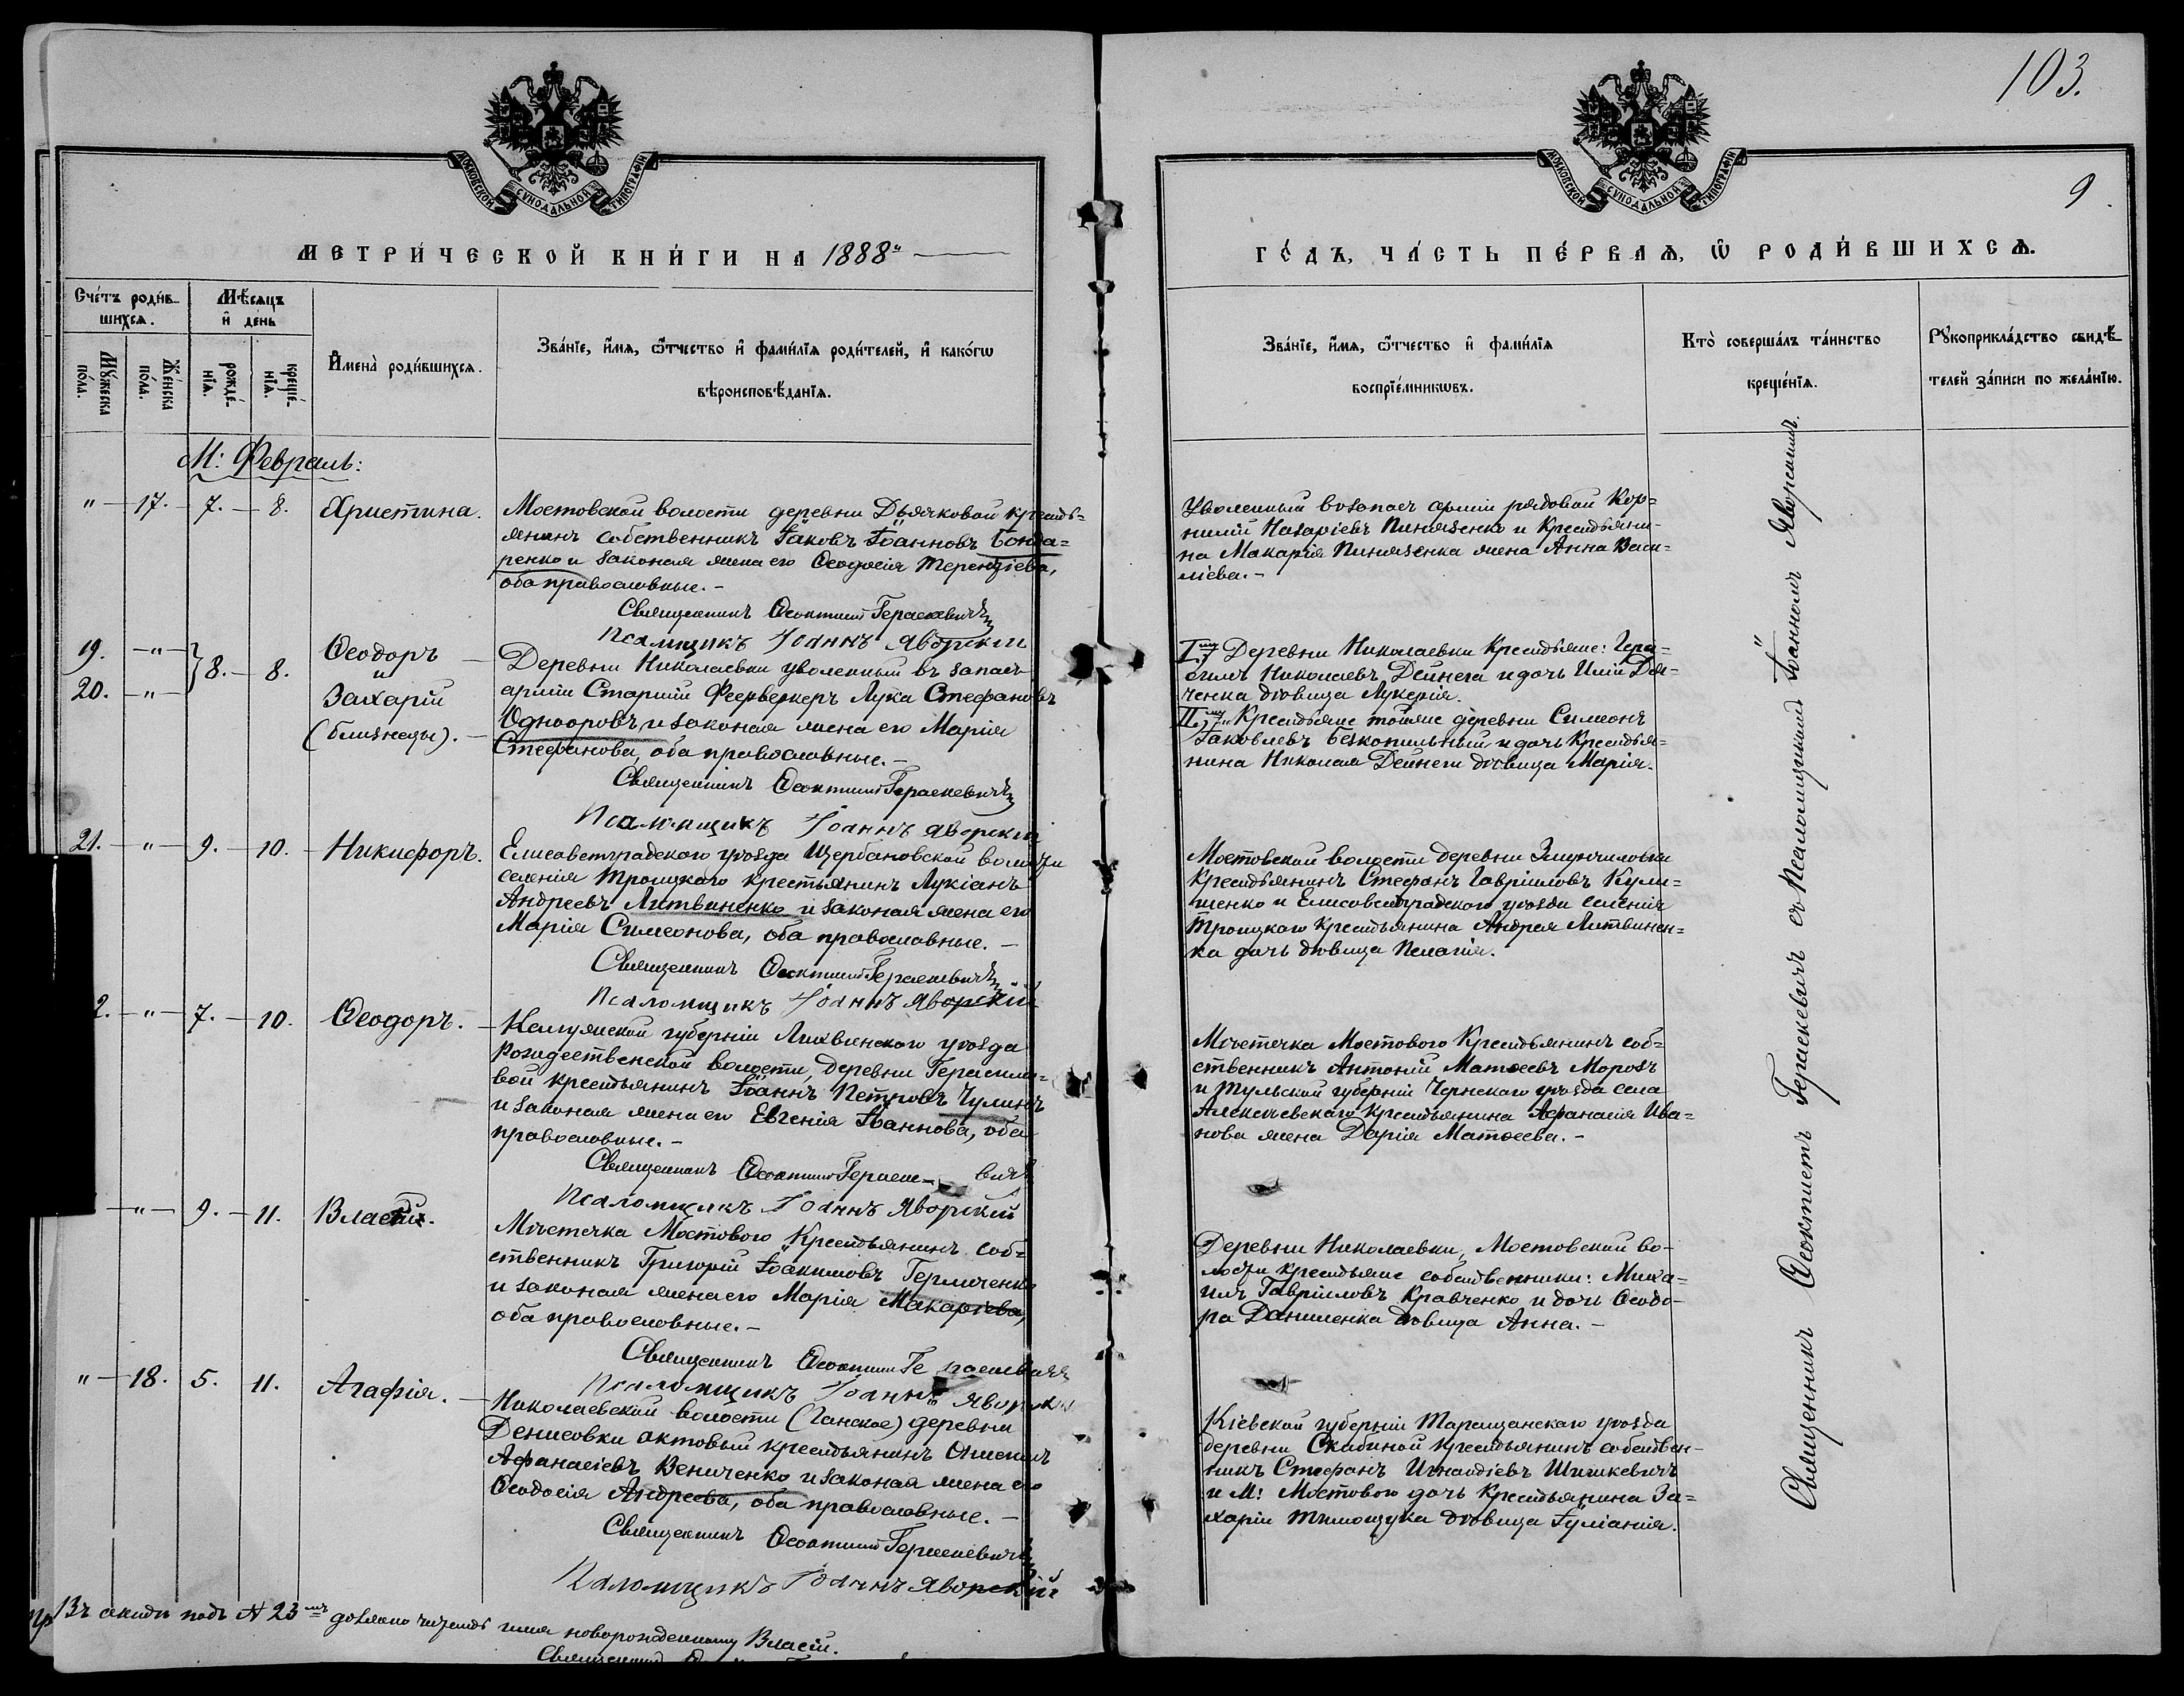 103.
9
МОСКОВСКОЙ СѴНОДАЛЬНОЙ ТИПОГРАФІИ
МОСКОВСКОЙ СѴНОДАЛЬНОЙ ТИПОГРАФІИ
МЕТРИ́ЧЕСКОЙ КНИ́ГИ НА 1888й
ГО́ДЪ, ЧА́СТЬ ПЕ́РВАѦ, Ѿ РОДИ́ВШИХСѦ.
Сче́тъ роди́в-
шихсѧ.
Мѣ́сѧцъ
и҆ день
Мꙋ́жеска
по́ла.
Же́нска
по́ла.
рожде́-
нїѧ.
креще́-
нїѧ.
И҆мена̀ роди́вшихсѧ.
Зва́нїе, и҆́мѧ, ѻ҆́тчество и҆ фами́лїѧ роди́телей, и҆ како́гѡ
вѣроисповѣ́данїѧ.
Зва́нїе, и҆́мѧ, ѻ҆́тчество и҆ фами́лїѧ
воспрїе́мникѡвъ.
Кто̀ соверша́лъ та́инство
креще́нїѧ.
Рꙋкоприкла́дство свидѣ́-
телей за́писи по жела́нїю.
М: Февраль:
" 17. 7. 8. Христина.
Мостовской волости деревни Дьячковой кресть-
янинъ собственникъ Іаковъ Іоанновъ Бонда=
ренко и законая жена его Ѳеодосія Терентіева,
оба православные.-
Священникъ Ѳеоктистъ Гераскевичъ
Псаломщикъ Іоаннъ Яворскій
Уволенный въ запасъ арміи рядовой Кор=
нилій Назаріевъ Пинязенко и Крестьяни-
на Макарія Пинязенка жена Анна Васи=
ліева.-
19. " 20. " 8. 8. Ѳеодоръ
и
Захарій
(близнецы).
Деревни Николаевки уволенный въ запасъ
арміи Старшій Фейерверкеръ Лука Стефановъ
Одноворовъ и законая жена его Марія
Стефанова, оба православные.-
Священникъ Ѳеоктистъ Гераскевичъ
Псаломщикъ Іоаннъ Яворскій
I. Деревни Николаевки Крестьяне: Гера=
симъ Николаевъ Дейнега и дочь Иліи Дья-
ченка дѣвица Лукерія.
II. Крестьяне тойже деревни Симеонъ
Іаковлевъ Безкопыльный и дочь Крестья=
нина Николая Дейнеги дѣвица Марія.
21. " 9. 10. Никифоръ.
Елисаветградского уѣзда Щербановской волости
селенія Троицкаго крестьянинъ Лукіанъ
Андреевъ Литвиненко и законая жена его
Марія Симеонова, оба православные.-
Священникъ Ѳеоктистъ Гераскевичъ
Псаломщикъ Іоаннъ Яворскій
Мостовской волости деревни
Крестьянинъ Стефанъ Гавріиловъ Кули=
шенко и Елисаветградского уѣзда селенія
Троицкаго Крестьянина Андрея Литвинен=
ка дочь дѣвица Пелагія.
2. " 7. 10. Ѳеодоръ.
Калужской губерніи Лихвинского уѣзда
Рождественской волости, деревни Герасимо-
вой крестьянинъ Іоаннъ Петровъ Чулинъ
и законая жена его Евгенія Іоаннова, оба
православные.-
Священникъ Ѳеоктистъ Гераске-вичъ
Псаломщикъ Іоаннъ Яворскій
Мѣстечка Мостового Крестьянинъ соб=
ственникъ Антоній Матѳеевъ Морозъ
и Тульской губерніи Чернского уѣзда села
Алексѣевскаго Крестьянина Аѳанасія Ива=
нова жена Дарія Матѳеева.-
" 9. 11. Власій.
Мѣстечка Мостового Крестьянинъ соб=
ственникъ Григорій Іоакимовъ Герличенко
и законая жена его Марія Макаріева,
оба православные.-
Священникъ Ѳеоктистъ Гераскевичъ
Псаломщикъ Іоаннъ Яворскій
Деревни Николаевки, Мостовской во-
лости крестьяне собственники: Миха=
илъ Гавріиловъ Кравченко и дочь Ѳеодо-
ра Даниленка дѣвица Анна.-
" 18. 5. 11. Агафія.
Николаевской волости (Ганское) деревни
Денисовки актовый крестьянинъ Онисимъ
Аѳанасіевъ Вениченко и законая жена его
Ѳеодосія Андреева, оба православные.-
Священникъ Ѳеоктистъ Гераскевичъ
Псаломщикъ Іоаннъ Яворскій
Кіевской губерніи Таращанского уѣзда
деревни Скибиной крестьянинъ собствен-
никъ Стефанъ Игнатіевъ Шишкевичъ
и М: Мостового дочь Крестьянина За=
харіи Тимощука дѣвица Іуліанія.
Священникъ Ѳеоктистъ Гераскевичъ съ Псаломщикомъ Іоанномъ Яворскимъ.
Въ статьѣ подъ № 23мъ должно читать имя новорожденному Власій.